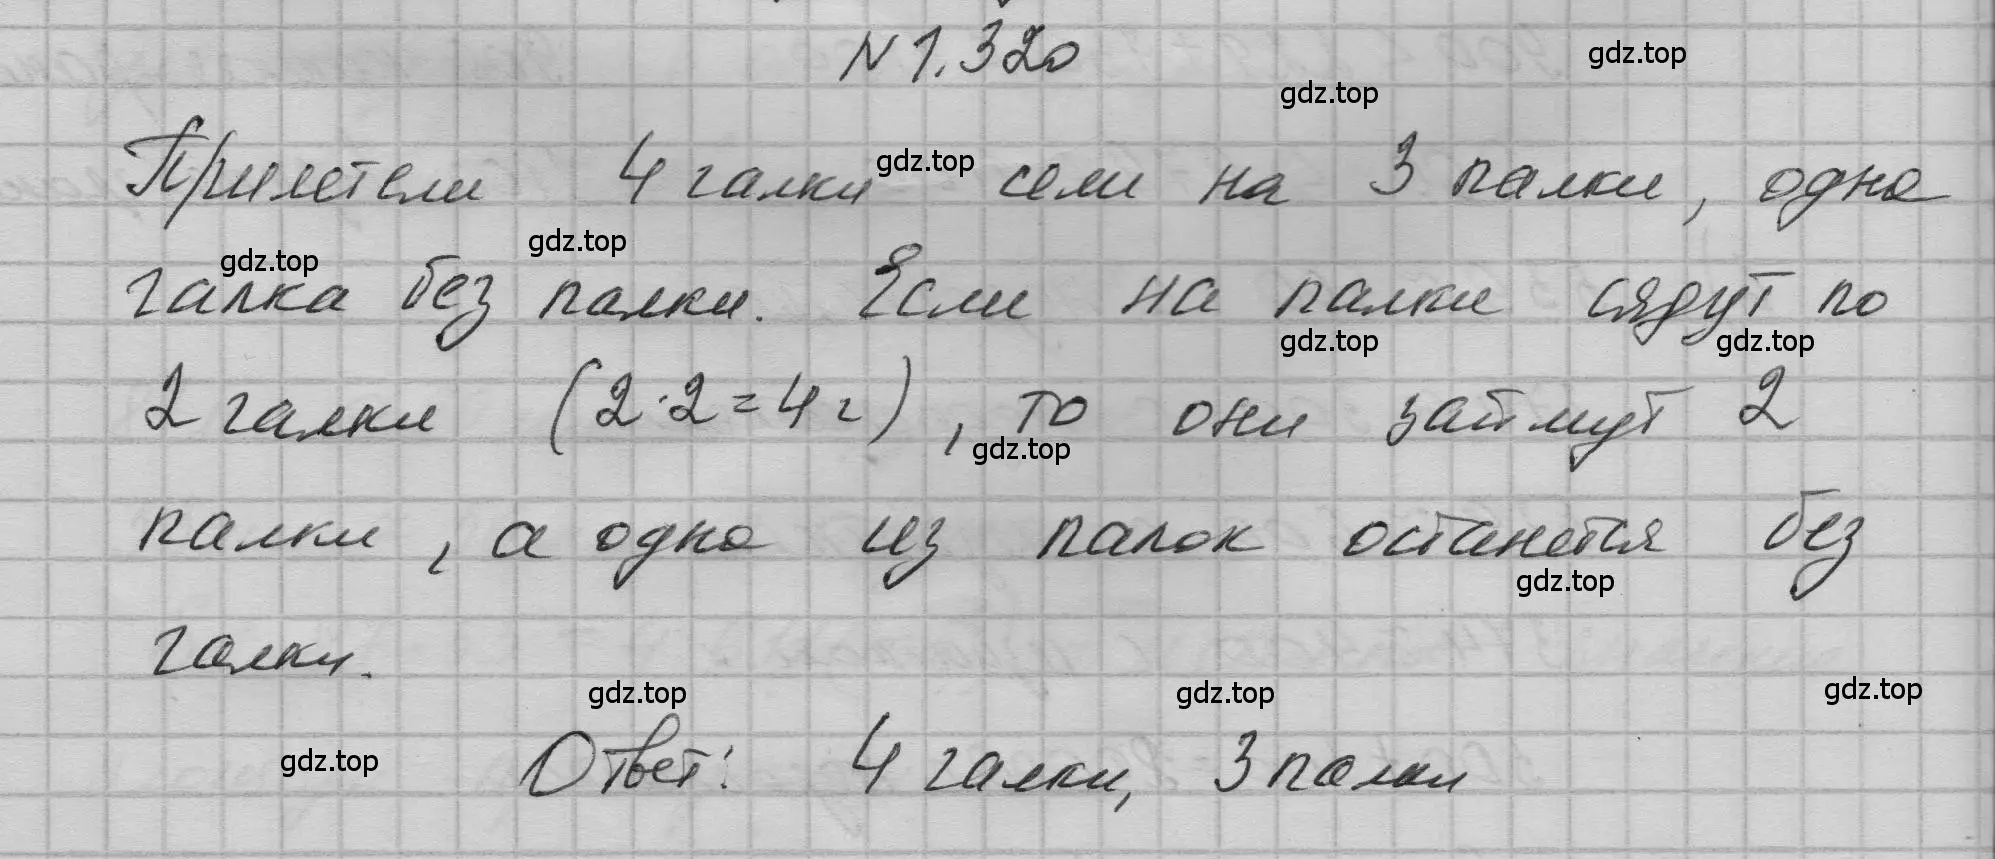 N 1.320
gdz.top
gdz.top
Прилетели 4 галки сели на 3 палки, одна
gdz.top
галка без палки. Если на палки сядут по
gdz.top gdz.top
gdz.top gdz.top
2 галки (2·2=4г), то они займут 2
gdz.top
палки, а одна из палок останется без
gdz.top
галки.
gdz.top gdz.top gdz.top
Ответ: 4 галки, 3 палки
gdz.top